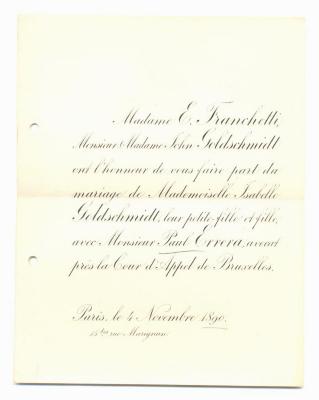 Madame E. Franchetti,
Monsieur Madame John Goldschmidt
ont l'honneur de vous faire part du
mariage de Mademoiselle Isabelle
Goldschmidt, leur petite-fille et fille,
avec Monsieur Paul Errera, avocat
près la Cour d'Appel de Bruxelles.
Paris, le 4 Novembre 1890.
rue Marignan.